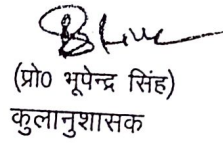 (प्रो0 भूपेन्द्र सिंह)
कुलानुशासक